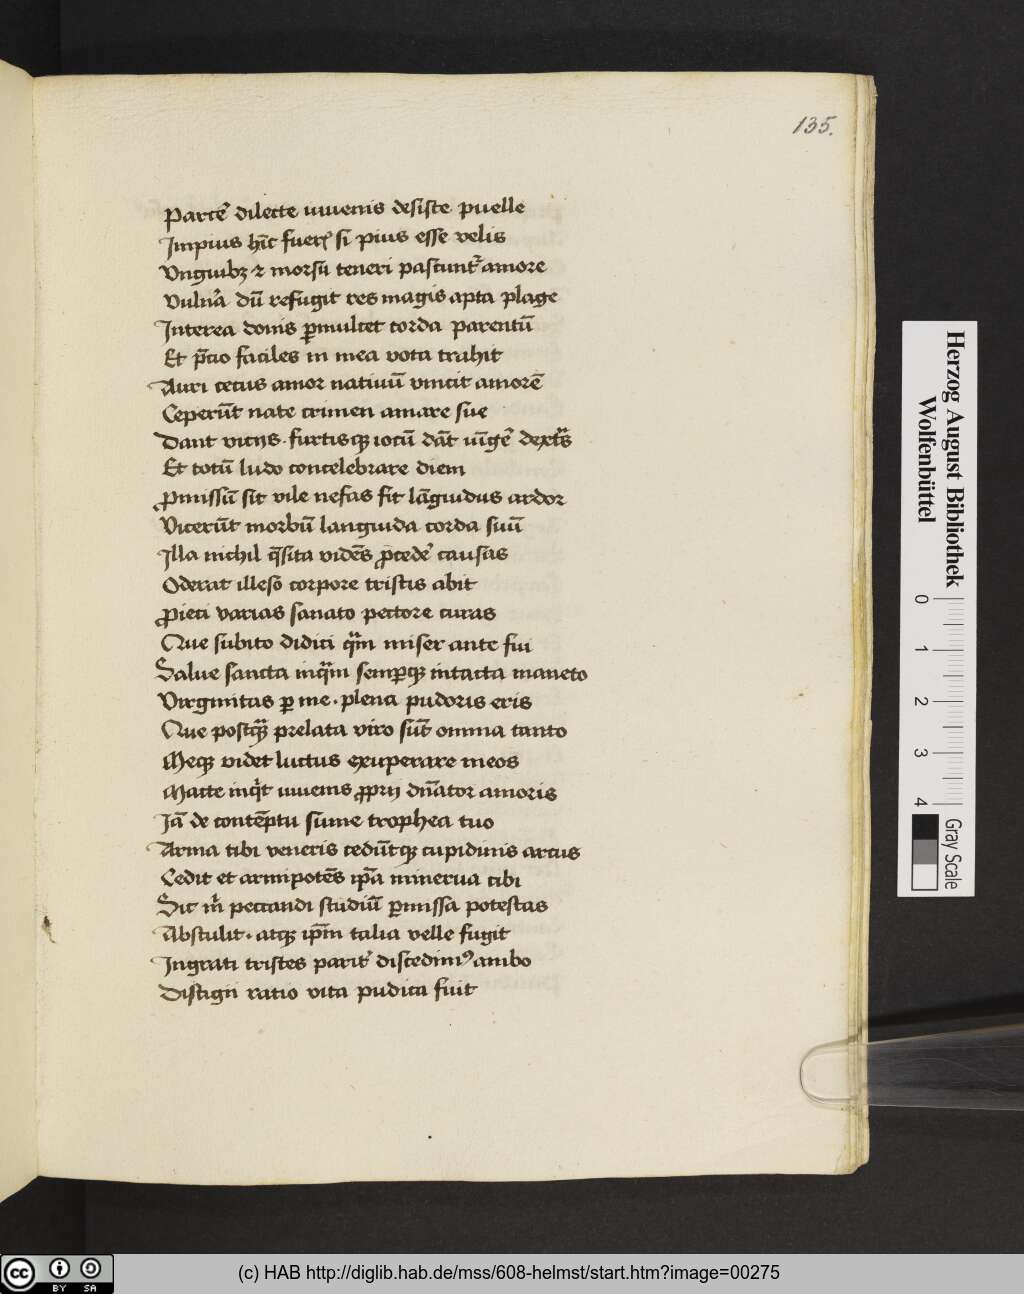 135.
Parcē dilecte iuuenis desiste puelle
Impius hīc fuerꝭ si pius esse velis
Vnguibꝫ ⁊ morsū teneri pascunt᷑ amore
Vulnᷓa dū refugit res magis apta plage
Interea donis ꝑmulcet corda parentū
Et p̄cio faciles in mea vota trahit
Auri cecus amor natiuū vincit amorē
Ceperūt nate crimen amare sue
Dant vicijs furtisqꝫ locū dāt iūge͛ dextᷓs
Et totū ludo concelebrare diem
ꝓmissū sit vile nefas fit lāguidus ardor
Vicerūt morbū languida corda suū
Illa nichil q̄sita vidēs ꝓcede͛ causas
Oderat illeso corpore tristis abit
ꝓieci varias sanato pectore curas
Que subito didici qᷓm miser ante fui
Salue sancta inqᷓm semꝑqꝫ intacta maneto
Virginitas ꝑ me . plena pudoris eris
Que postqᷓꝫ prelata viro sūt omnia tanto
Meqꝫ videt luctus exuperare meos
Macte inqͥt iuuenis ꝓprij dn̄ator amoris
Iā de contēptu sume trophea tuo
Arma tibi veneris cedūtqꝫ cupidinis arcus
Cedit et armipotēs ip̄a minerua tibi
Sic m̄ peccandi studiū ꝑmissa potestas
Abstulit . atqꝫ ip̄m talia velle fugit
Ingrati tristes parit͛ discedimꝰ ambo
Discigii ratio vita pudica fuit
Herzog August Bibliothek
Wolfenbüttel
0 1 2 3 4
Gray Scale
cc BY SA
(c) HAB http://diglib.hab.de/mss/608-helmst/start.htm?image=00275